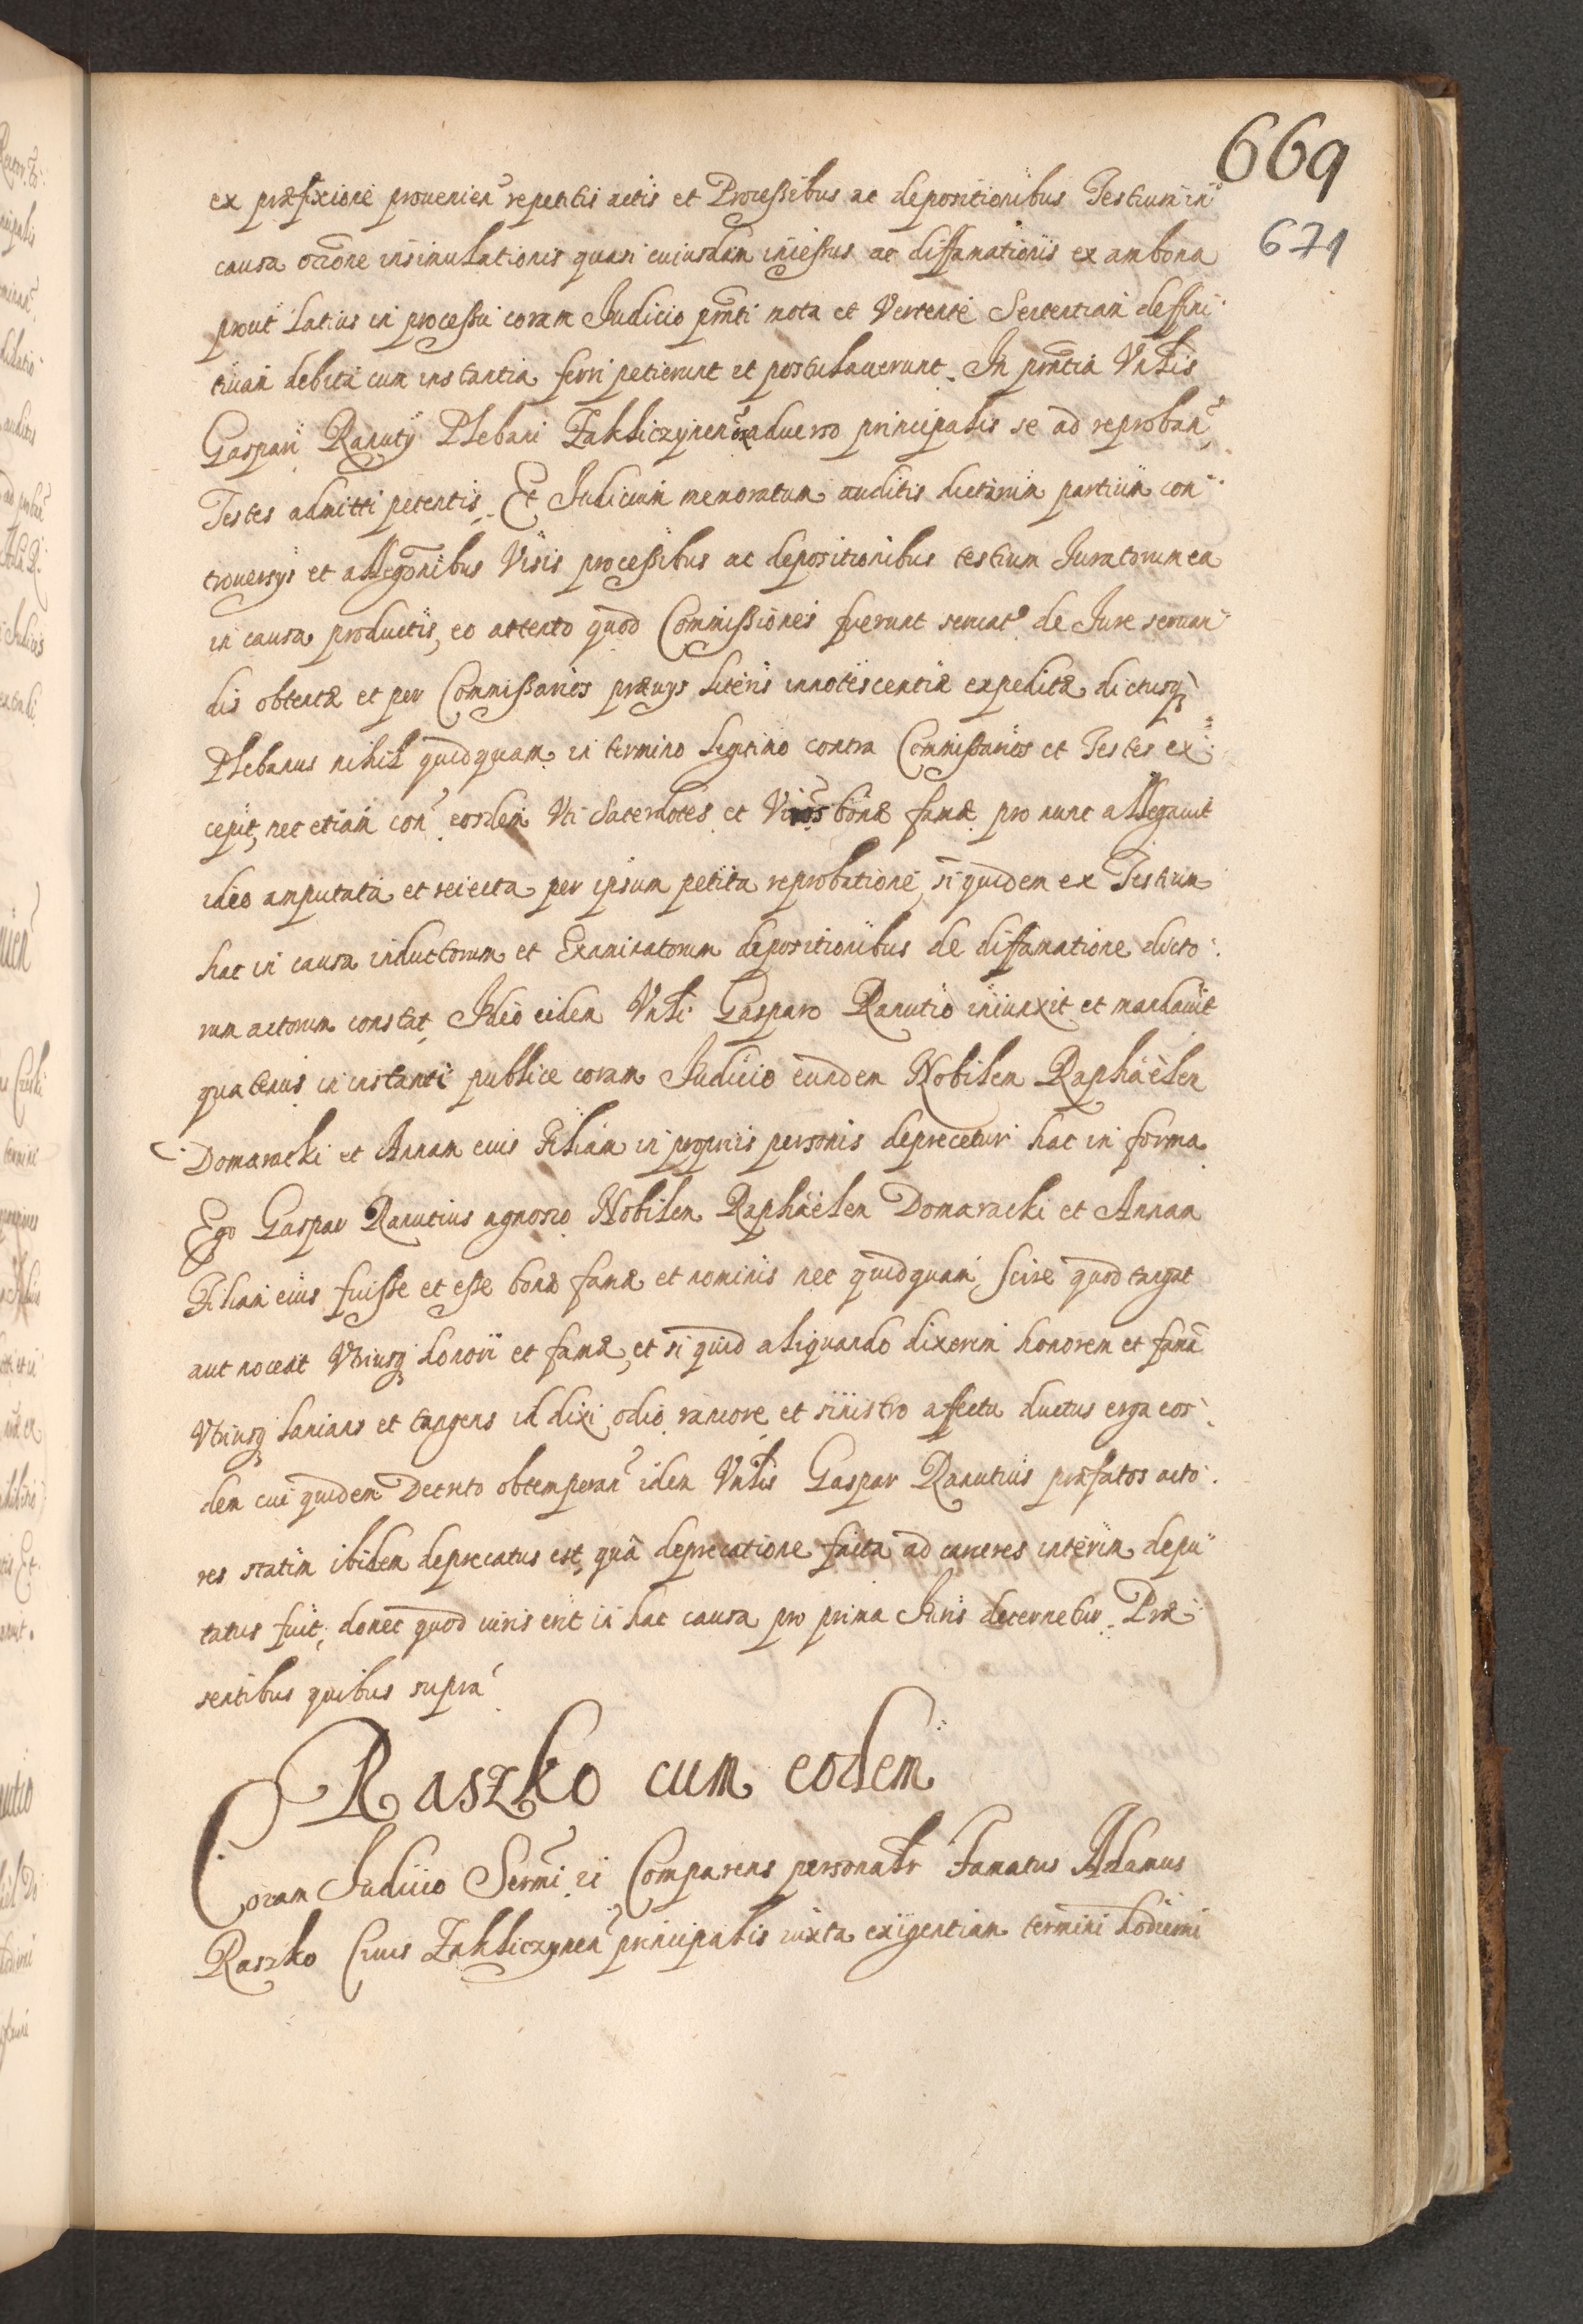 669
671
ex præfixione provenien̄ repetitis actis et Processibus ac depositionibus Testium in
causa ōcc̄one insimulationis quasi cuiusdam incestus ac diffamationis ex ambona
prout latius in processu coram Judicio pn̄ti nota et Vertente Sententiam deffini
tiuam debita cum instantia ferri petierunt et postulauerunt. In pn̄tia Vn̄lis
Gaspari Ranuty Plebani Zakliczynen̄ ex aduerso principalis se ad reproban̄
Testes admitti petentis. Et Judicium memoratum auditis dictarum partium con
trouersys et allegōnibus Visis processibus ac depositionibus testium Juratorum ea
in causa productis, eo attento quod Commissiones fuerunt seruat̄ de Jure seruan
dis obtentæ et per Commissarios præuys literis innotescentiæ expeditæ dictusq;
Plebanus nihil quidquam in termino legitimo contra Commissarios et Testes ex
cepit, nec etiam con̄ eosdem Vti Sacerdotes et Viros bonæ famæ pro nunc allegauit
ideo amputata et reiecta per ipsum petita reprobatione, siquidem ex Testium
hac in causa inductorum et Examinatorum depositionibus de diffamatione dicto
rum actorum constat, Ideo eidem Vn̄li Gasparo Ranutio iniunxit et mandauit
quatenus in instanti publice coram Judicio eundem Nobilem Raphaèlem
Domaracki et Annam eius Filiam in proprÿs personis deprecetur hac in forma
Ego Gaspar Ranutius agnosco Nobilem Raphaèlem Domaracki et Annam
Filiam eius fuisse et esse bonæ famæ et nominis nec quidquam scire quod tangat
aut noceat Vtriusq; honori et famæ, et si quid aliquando dixerim honorem et famā
Vtriusq; lanians et tangens id dixi odio rancore et sinistro affectu ductus erga eos
dem cui quidem Decreto obtemperan̄ idem Vn̄lis Gaspar Ranutius præfatos acto
res statim ibidem deprecatus est, quâ deprecatione facta ad carceres interim depu
tatus fuit, donec quod iuris erit in hac causa pro prima Juris decernetur. Præ
sentibus quibus supra
Raszko cum eodem
Coram Judicio Sermi ei Comparens personalr̄ Famatus Adamus
Raszko Ciuis Zakliczynen̄ principalis iuxta exigentiam termini hodierni